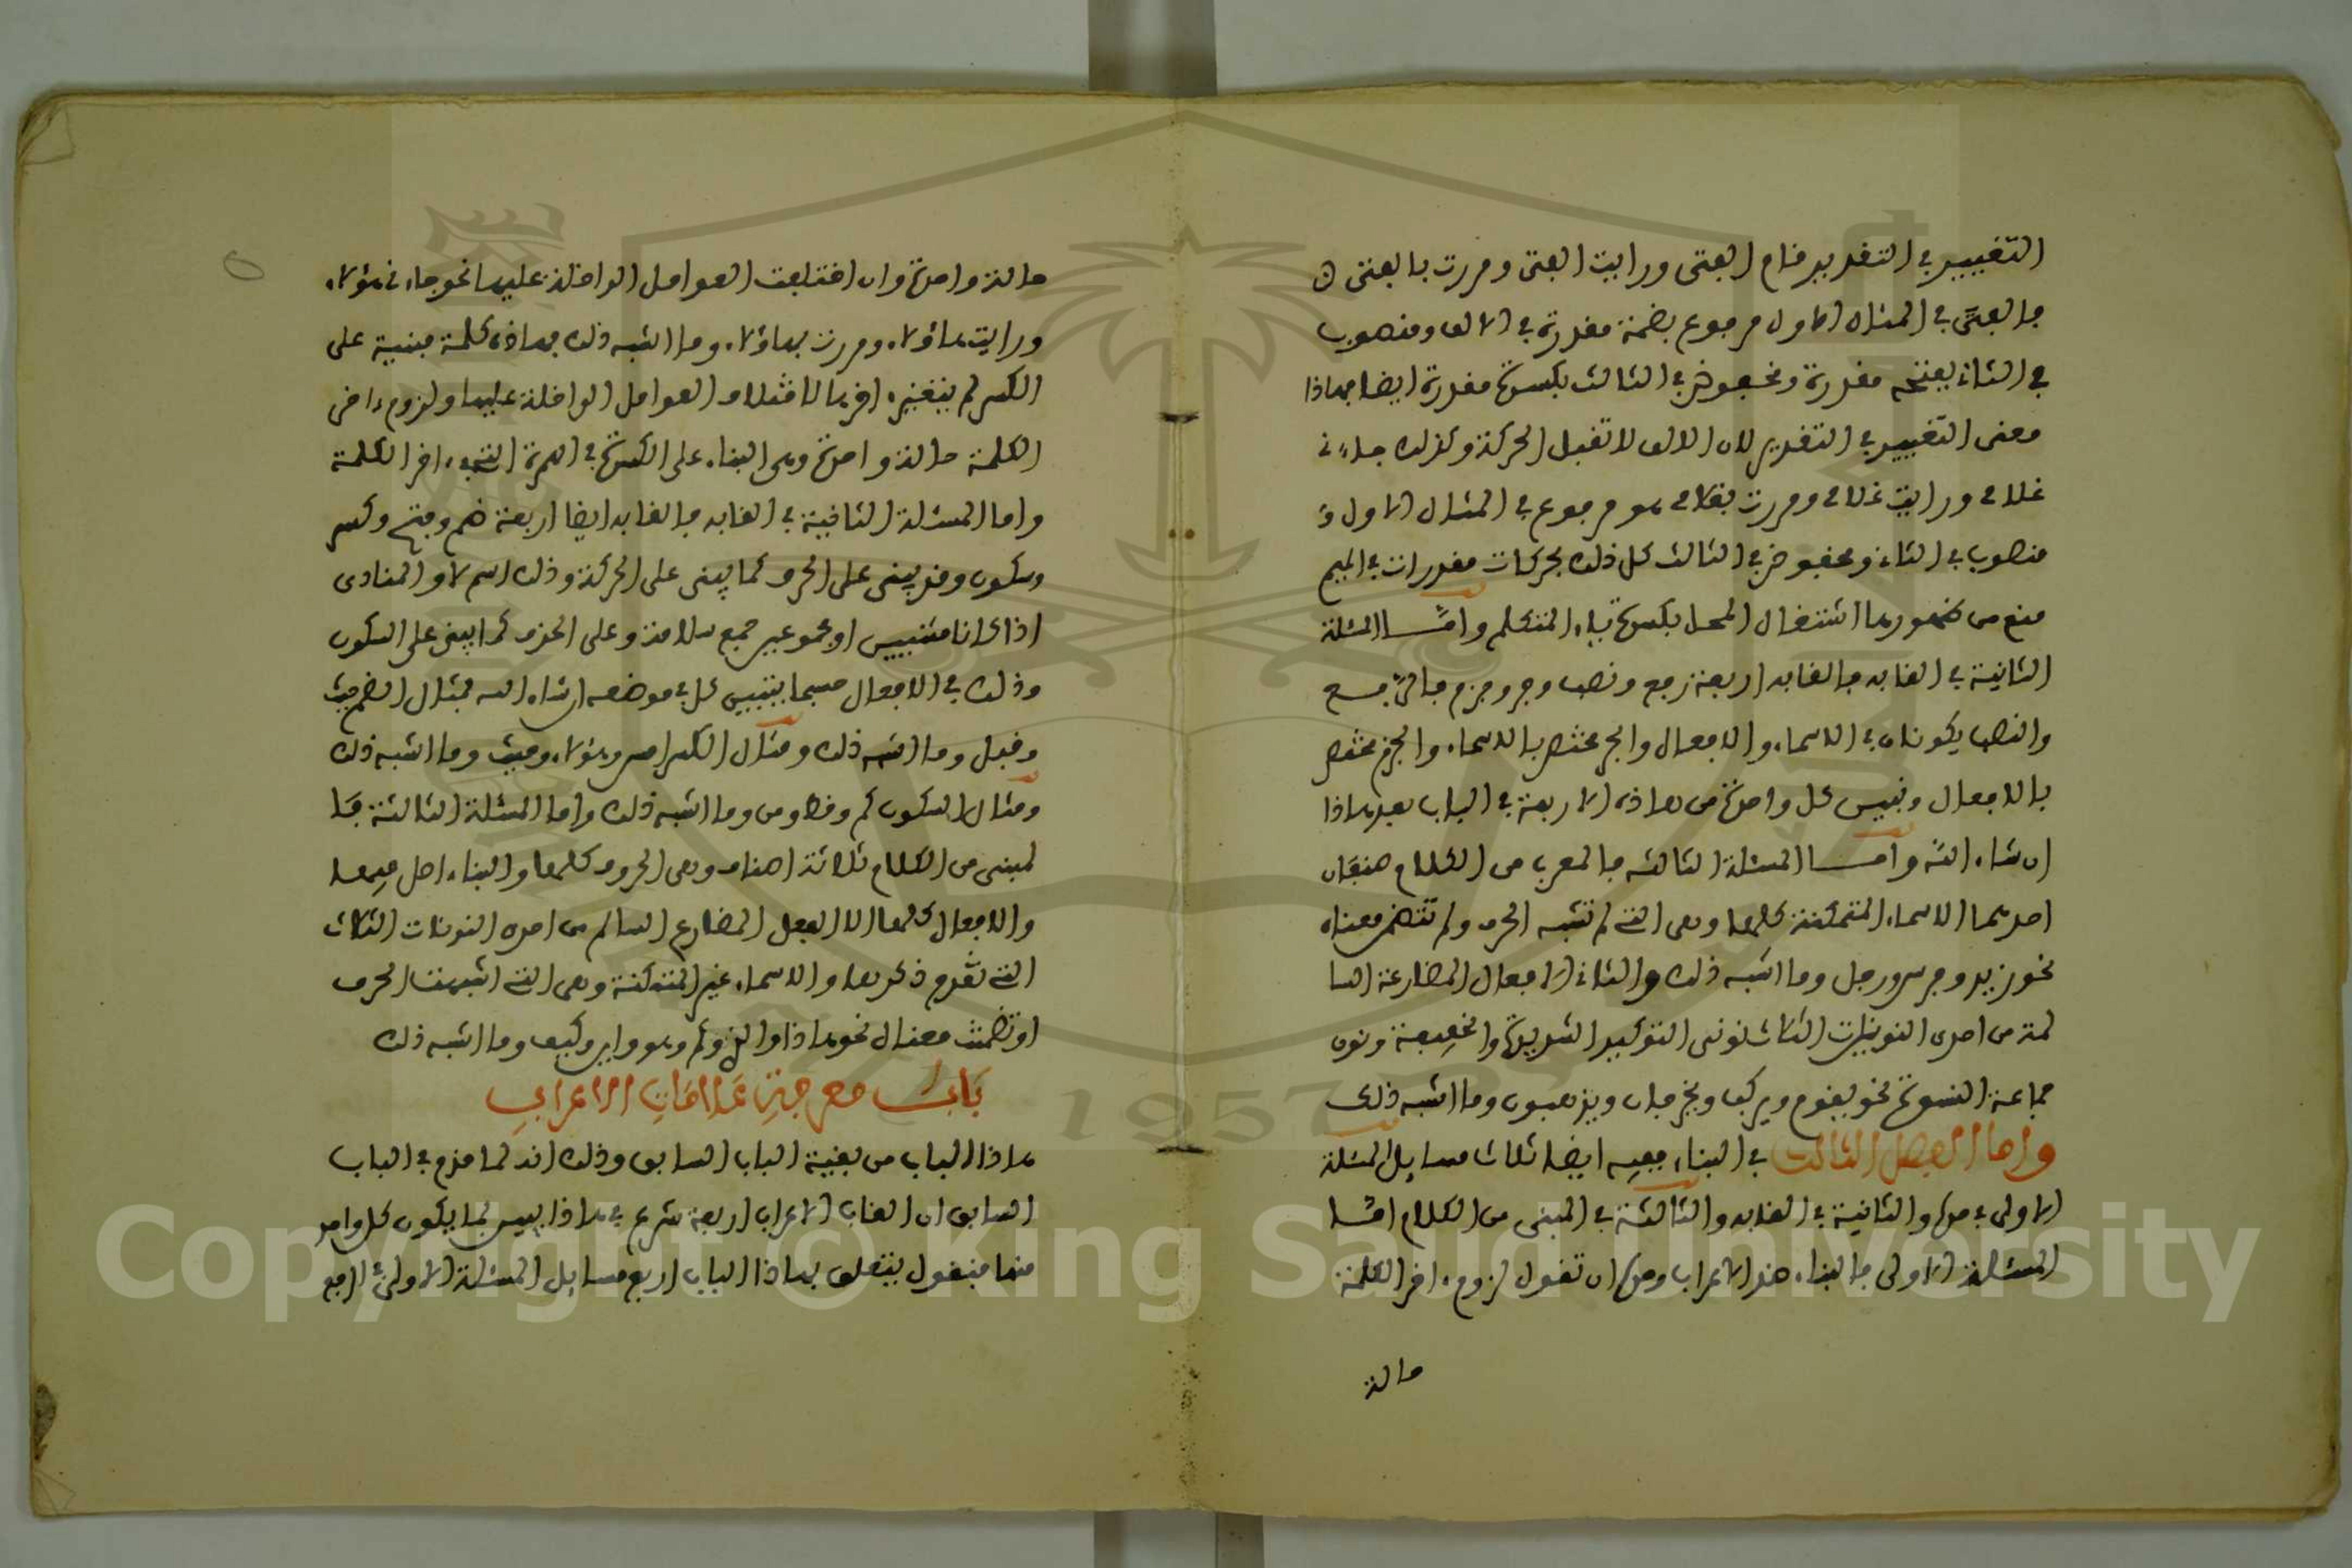 التغيير في التقدير قام الفتى ورايت الفتى ومررت بالفتى
فالفتى في المثال الاول مرفوع بضمة مقدرة في الالف ومنصوب
في الثاني بفتحة مقدرة ومخفوض في الثالث بكسرة مقدرة ايضا فهاذا
معنى التغيير في التقدير لان الالف لا تقبل الحركة وكذلك جاءني
غلامي ورايت غلامي ومررت بغلامي هو مرفوع في المثال الاول و
منصوب في الثاني ومخفوض في الثالث كل ذلك بحركات مقدرات في الميم
منع من ظهورها اشتغال المحل بكسرة ياء المتكلم واما المسئلة
الثانية في القابه فالقابه اربعة رفع ونصب وجر وجزم فالرفع
والنصب يكونان في الاسماء والافعال والجر مختص بالاسماء والجزم مختص
بالافعال ونبين كل واحدة من هاذه الاربعة في الباب بعد هاذا
ان شاء الله واما المسئلة الثالثة فالمعرب من الكلام صنفان
احدهما الاسماء المتمكنة كلها وهي التي لم تشبه الحرف ولم تتضمن معناه
نحو زيد وفرس ورجل وما اشبه ذلك والثاني الافعال المضارعة السا
لمة من احدى النونات الثلاث نوني التوكيد الشديدة والخفيفة ونون
جماعة النسوة نحو يقوم ويركب ويخرجان ويذهبون وما اشبه ذلك
واما الفصل الثالث في البناء ففيه ايضا ثلاث مسايل المسئلة
الاولى في حده والثانية في القابه والثالثة في المبني من الكلام اما
المسئلة الاولى فالبناء ضد الاعراب وحده ان تقول لزوم ءاخر الكلمة
حالة
حالة واحدة وان اختلفت العوامل الداخلة عليها نحو جاءني هؤلاء
ورايت هاؤلاء ومررت بهاؤلاء وما اشبه ذلك فهاذه كلمة مبنية على
الكسر لم يتغير ءاخرها لاختلاف العوامل الداخلة عليها ولزوم ءاخر
الكلمة حالة واحدة وهي البناء على الكسرة في الهمزة التي ءاخر الكلمة
واما المسئلة الثانية في القابه فالقابه ايضا اربعة ضم وفتح وكسر
وسكون وقد يبنى على الحرف كما يبنى على الحركة وذلك اسم لا والمنادى
اذا كانا مثنيين او مجموعين جمع سلامة وعلى الحذف كما يبنى على السكون
وذلك في الافعال حسبما يتبين كل في موضعه ان شاء الله فمثال الضم حيث
وقبل وما اشبه ذلك ومثال الكسر امس وهؤلاء وحيث وما اشبه ذلك
ومثال السكون كم وقط ومن وما اشبه ذلك واما المسئلة الثالثة فا
لمبني من الكلام ثلاثة اصناف وهي الحروف كلها والبناء اصل فيها
والافعال كلها الا الفعل المضارع السالم من احدى النونات الثلاث
التي تقدم ذكرها والاسماء غير المتمكنة وهي التي اشبهت الحرف
او تضمنت معناه نحو هاذا والذي وكم وهو واين وكيف وما اشبه ذلك
باب معرفة علامات الاعراب
هاذا الباب من بقية الباب السابق وذلك انه لما قدم في الباب
السابق ان القاب الاعراب اربعة شرع في هاذا يبين بما يكون كل واحد
منها فنقول يتعلق بهاذا الباب اربع مسايل المسئلة الاولى في الرفع